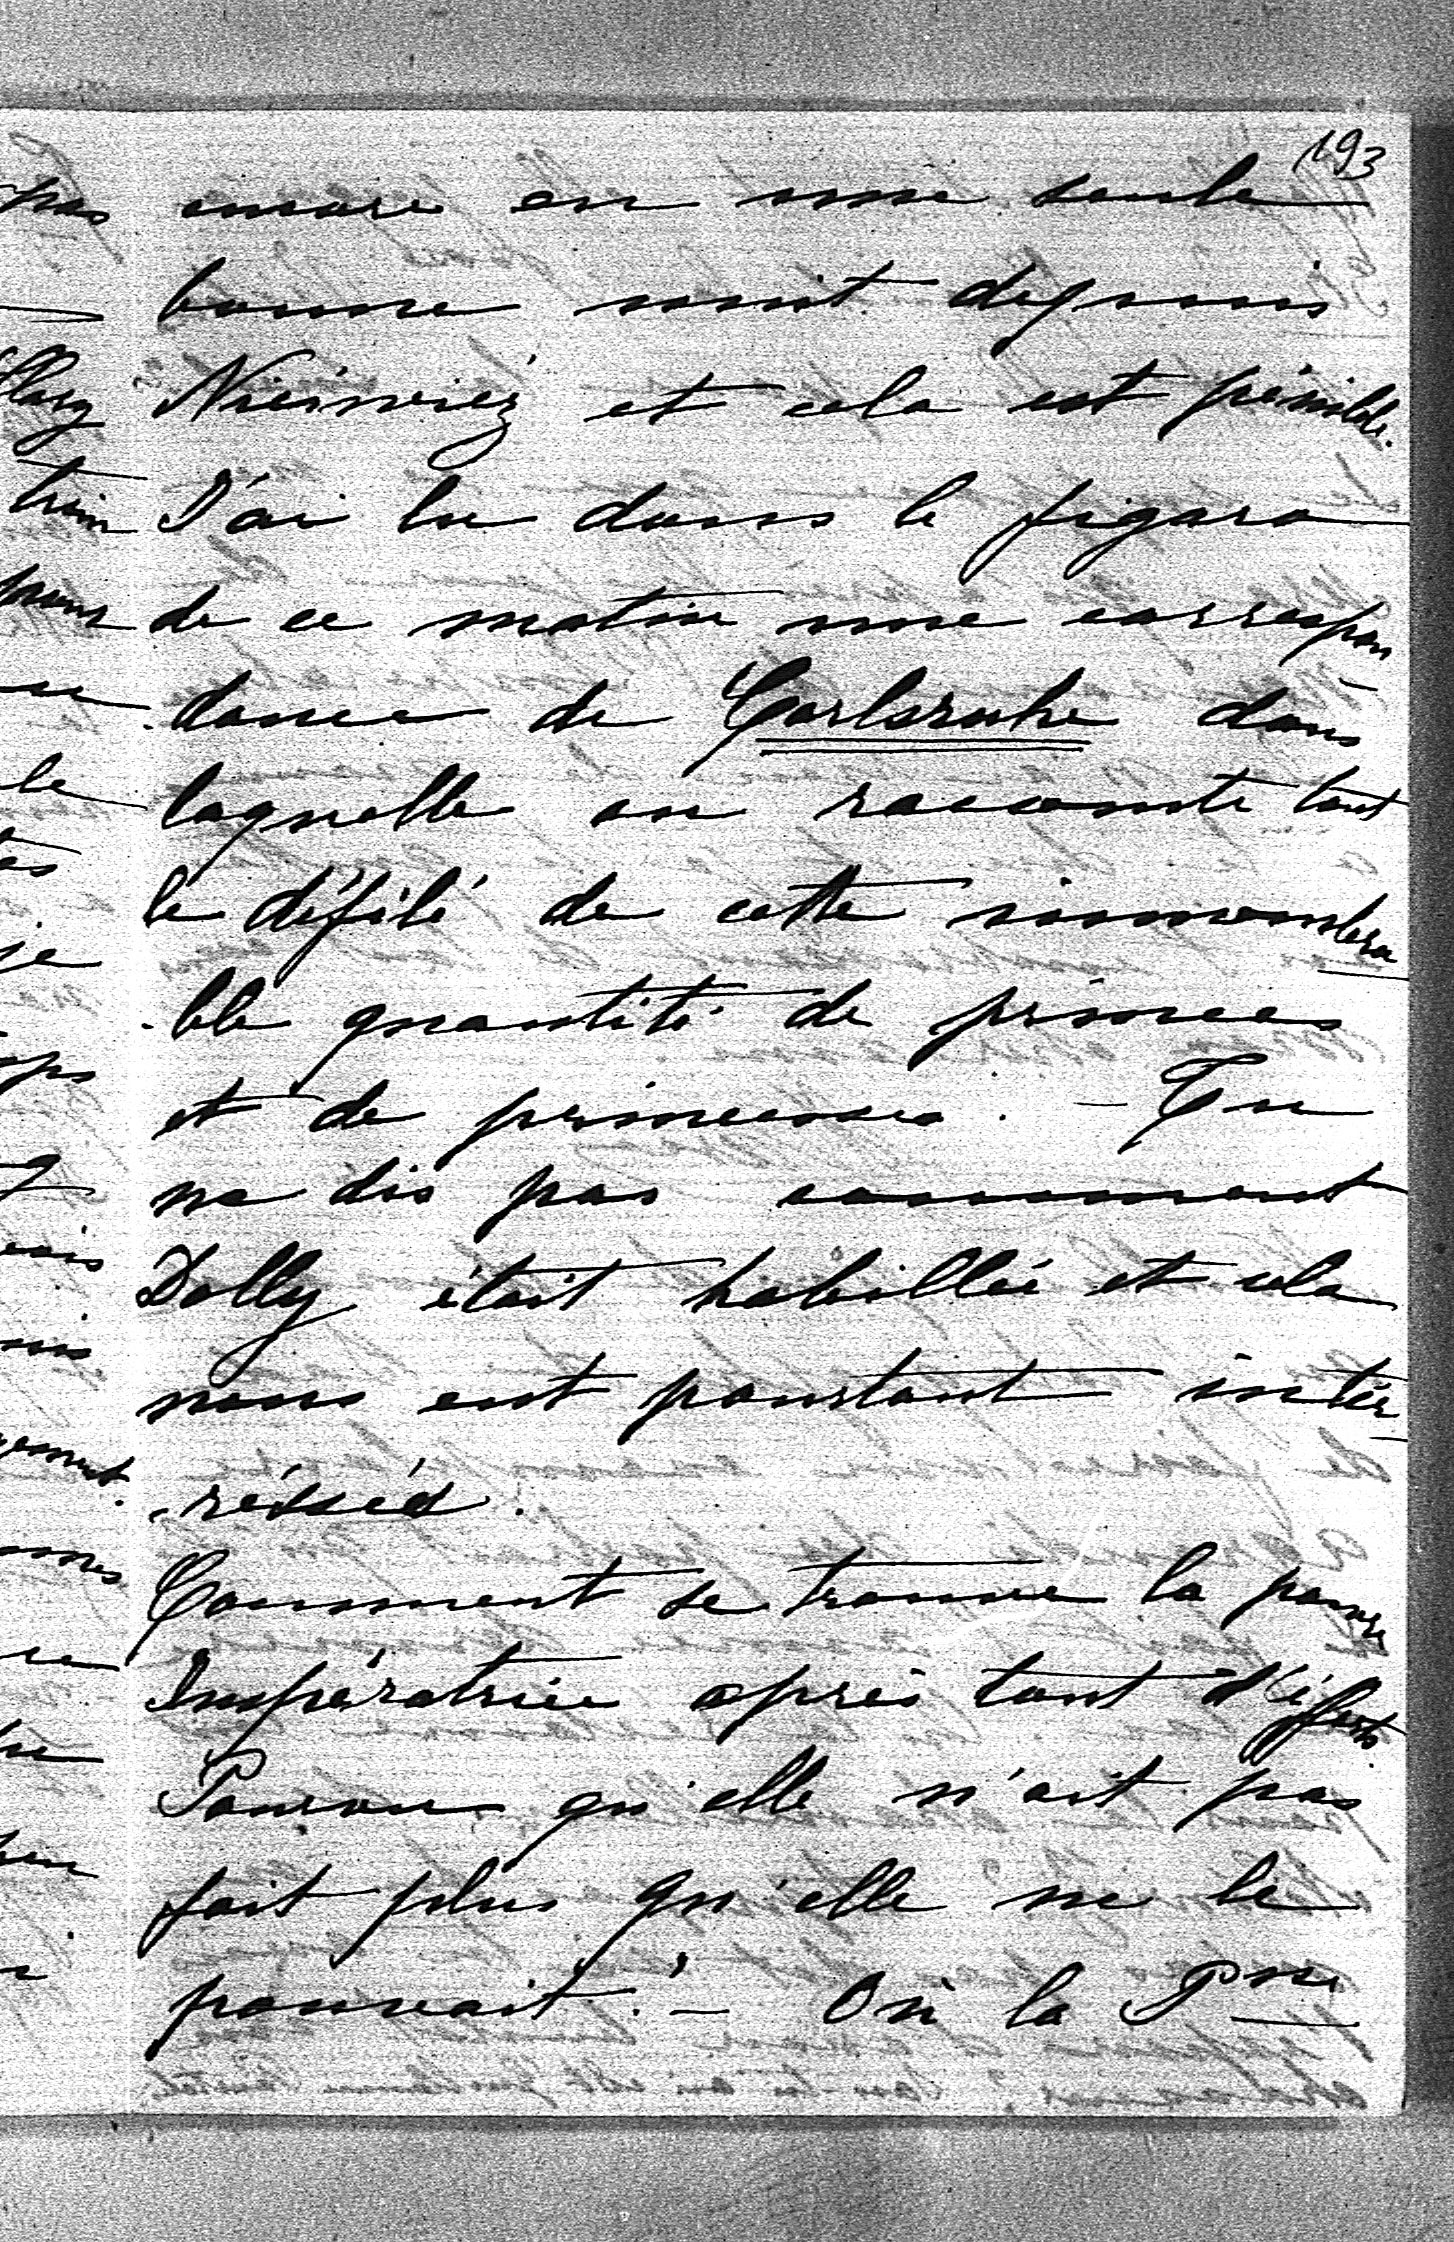 193
encore eu une seule
bonne nuit depuis
Niéswiéz et cela est pénible.
J'ai lu dans le figaro
de ce matin une correspon
-dance de Carlsruhe dans
laquelle on raconte tout
le défilé de cette innombra
-ble quantité de princes
et de princesses. - Tu
ne dis pas comment
Dolly était habillée et cela
nous eut pourtant intér
-réssés.
Comment se trouve la pauvre
Impératrice après tant d'éfforts
Pourvu qu'elle n'ait pas
fait plus qu'elle ne le
pouvait! - Où la Pne